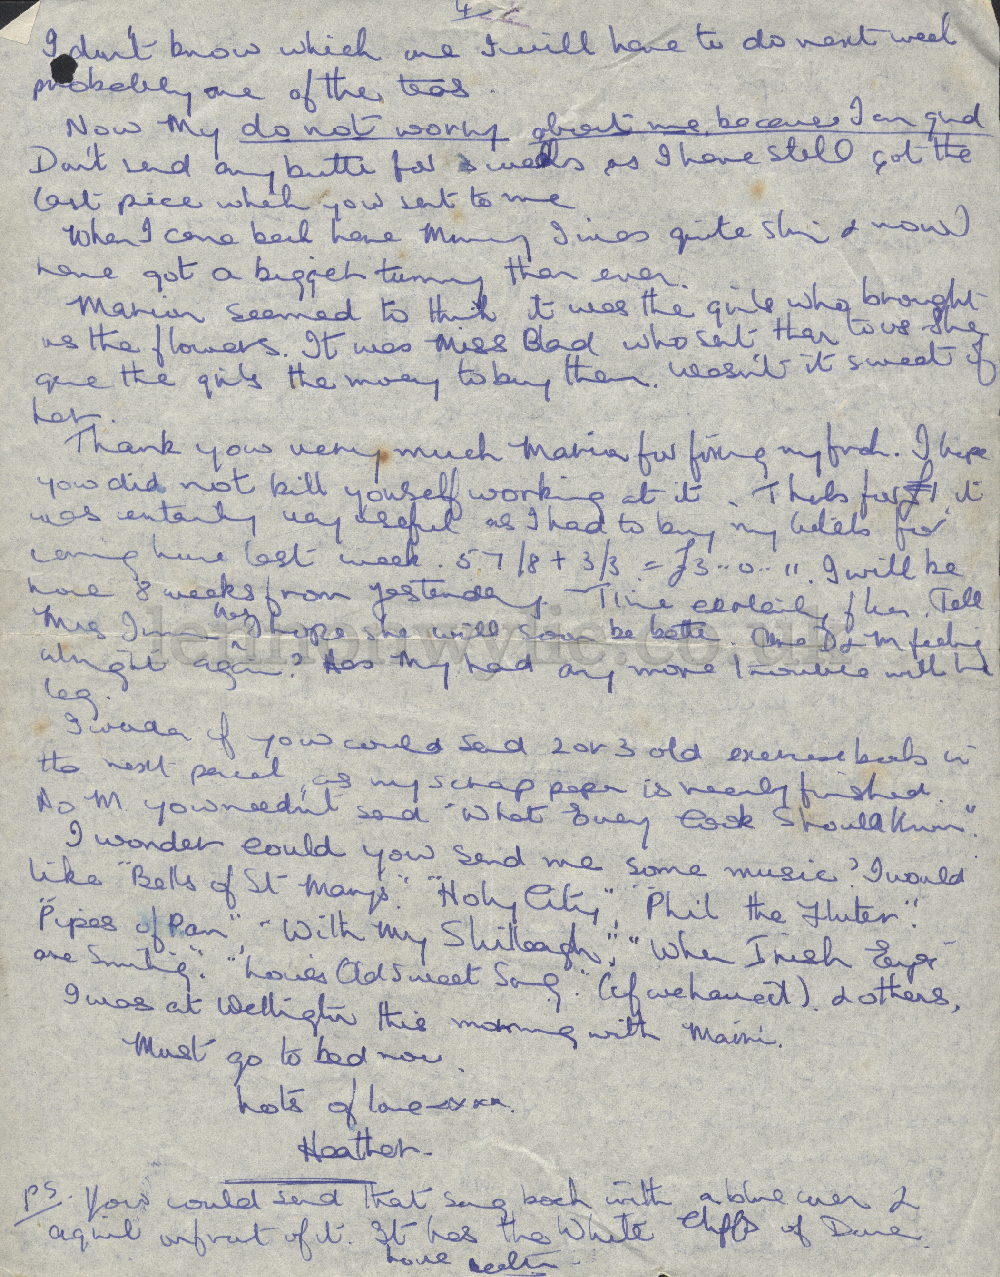 4
I don't know which one I will have to do next week
probably one of the teas.
Now My do not worry about me because I am grand
Don't send any butter for 3 weeks as I have still got the
last piece which you sent to me
When I came back here Mummy I was quite slim & now I
have got a bigger tummy than ever.
Marion seemed to think it was the girls who brought
us the flowers. It was Miss Blad who sent them to us she
gave the girls the money to buy them. Wasn't it sweet of
her.
Thank you very much Marion for fixing my frock. I hope
you did not kill yourself working at it. Thanks for £1, it
was certainly very useful as I had to buy my tickets for
coming here last week. 57/8 + 3/3 = £3..0..11. I will be
here 8 weeks from yesterday. Time certainly flies. Tell
Mrs I hope she will soon be better. D & M feeling
alright again? Has My had any more trouble with her
leg.
I wonder if you could send 2 or 3 old exercise books in
the next parcel, as my scrap paper is nearly finished.
No M. you needn't send "What Every Cook Should Know".
I wonder could you send me some music? I would
like "Bells of St Marys". "Holy City", "Phil the Fluter".
"Pipes of Pan", "With My Shillelagh", "When Irish Eyes
are Smiling". "Love's Old Sweet Song". (if we have it). & others,
I was at Wellington this morning with Maini.
Must go to bed now.
Lots of love xxxx.
Heather.
PS. You could send that song book with a blue cover &
a girl in front of it. It has the White Cliffs of Dover.
Love
lennonwylie.co.uk